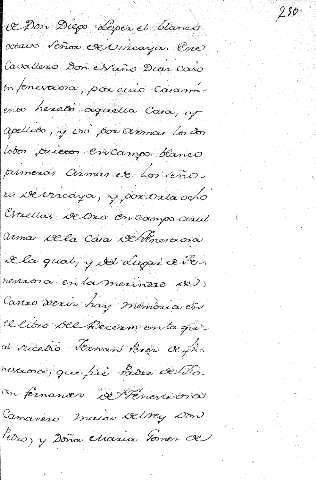 230
de Don Diego Lopez el blanco
octavo Señor de Vizcaya. Este
Cavallero Don Nuño Diaz casò
en fenestrosa, por cuio casami-
ento heredò aquella Casa, y
Apellido, y usò por armas los dos
lobos prietos en campo blanco
primeras armas de los seño-
res de Vizcaya, y por orla ocho
estrellas de oro en campo azul
armas de la Casa de Fenestrosa
de la qual, y del Lugar de Fe-
nestrosa en la Merindad de
Castro Xeriz hay memoria en
el libro del Becerro, en la qu-
al sucediò Fernan Perez de Fe-
nestrosa, que fuè Padre de Ju-
an Fernandez de Fenestrosa
Camarero maior del Rey Don
Pedro, y Doña Maria Gomez de